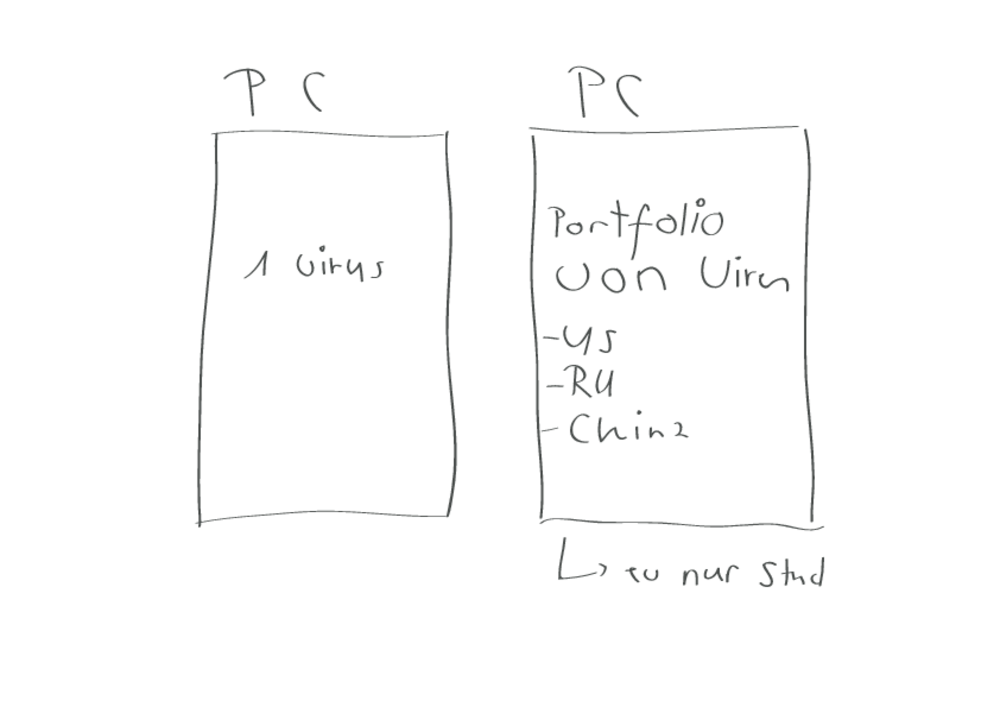 PC
1 Virus
PC
Portfolio
von Viren
- US
- RU
- China
nur